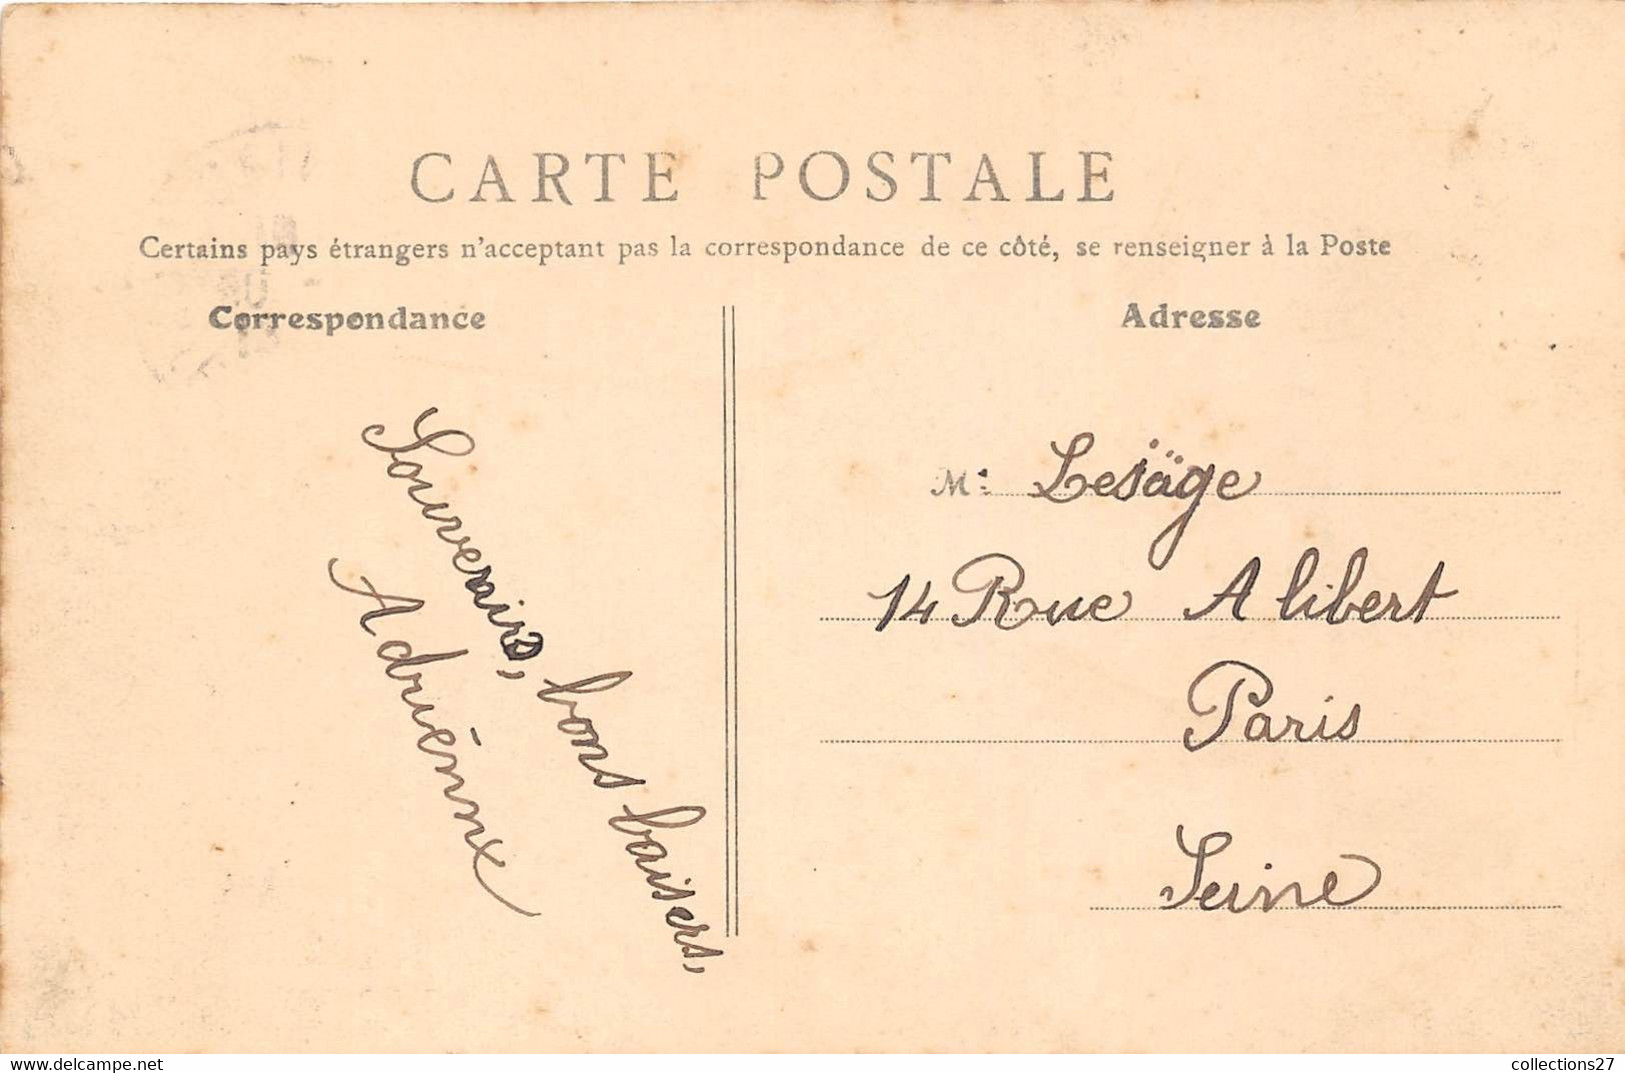 CARTE POSTALE
Certains pays étrangers n'acceptant pas la correspondance de ce côté, se renseigner à la Poste
Correspondance
Adresse
Souvenirs, bons baisers,
Adriénne
M: Lesäge
14 Rue Alibert
Paris
Seine
www.delcampe.net
collections27